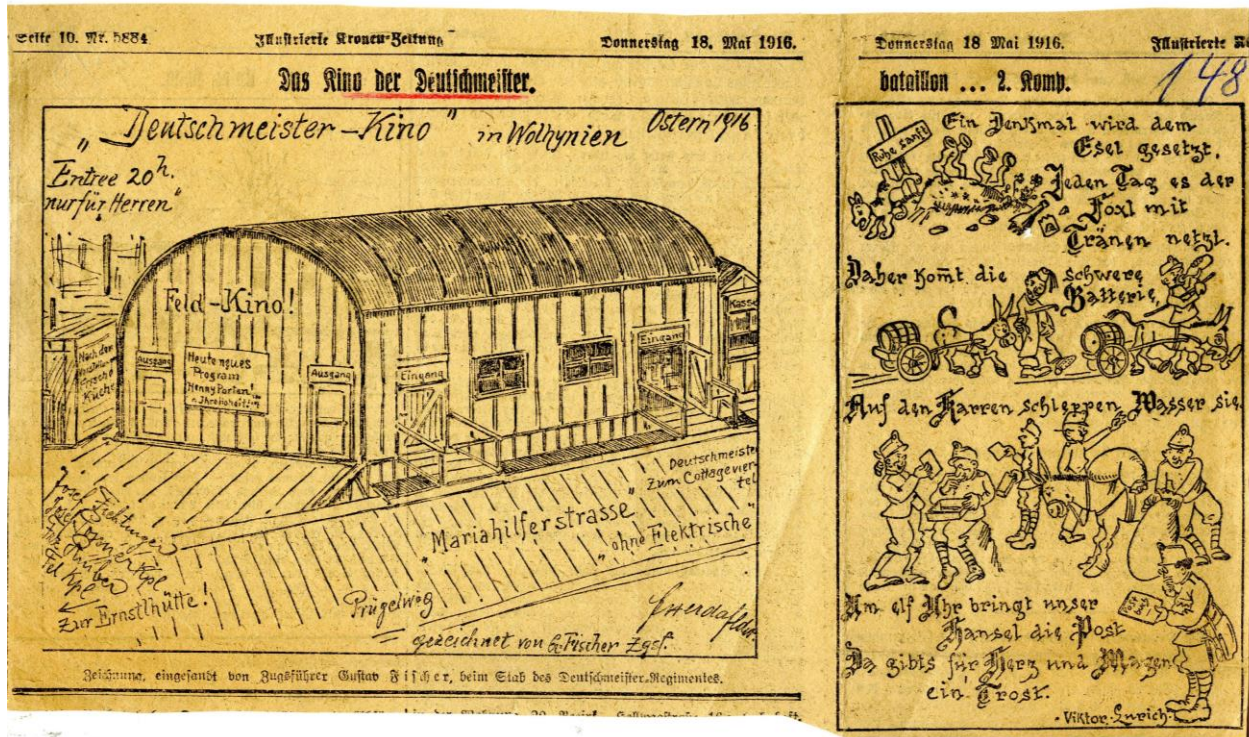 Seite 10. Nr. 5884
Illustrierte Kronen-Zeitung
Donnerstag 18. Mai 1916.
Das Kino der Deutschmeister.
„Deutschmeister-Kino"
in Wolhynien
Ostern 1916
Entree 20h.
nur für Herren"
Feld-Kino!
Ausgang
Heute neues
Program
Henny Porten!
Ausgang
Eingang
Eingang
Kasse
Nach der
Küche
Deutschmeister
zum Cottagevier-
tel
„Mariahilferstrasse"
„ohne Elektrische"
Josef
zur Ernstlhütte!
Prügelweg
gezeichnet von G. Fischer Zgsf.
Zeichnung, eingesandt von Zugsführer Gustav Fischer, beim Stab des Deutschmeister-Regimentes.
Donnerstag 18 Mai 1916.
Illustrierte
148
bataillon ... 2. Komp.
Ruhe sanft
Ein Denkmal wird dem
Esel gesetzt,
Jeden Tag es der
Foxl mit
Tränen netzt.
Daher kom̄t die schwere
Batterie,
Auf den Karren schleppen Wasser sie.
Um elf Uhr bringt unser
Hansel die Post
Da gibts für Herz und Magen
ein Trost.